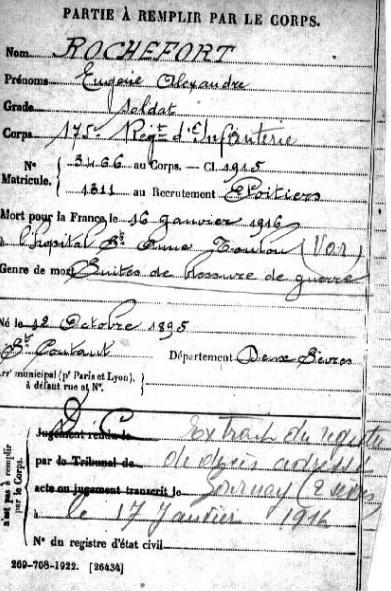 PARTIE À REMPLIR PAR LE CORPS.
Nom ROCHEFORT
Prénoms Eugène Alexandre
Grade Soldat
Corps 175e Régt d'Infanterie
N° 3466 au Corps. — Cl. 1915
Matricule. 1311 au Recrutement Poitiers
Mort pour la France, le 16 Janvier 1916
à l'hopital Ste Anne Toulon (Var)
Genre de mort Suites de blessure de guerre
Né le 12 Octobre 1895
St Coutant Département Deux Sèvres
Arrt municipal (pr Paris et Lyon),
à défaut rue et N°.
D C
Jugement rendu le Extrait du registre
par le Tribunal de de décès adressé
acte ou jugement transcrit le (2 Sèvres
à le 17 Janvier 1916
N° du registre d'état civil
n'est pas à remplir
par le Corps.
269-708-1922. [26434]